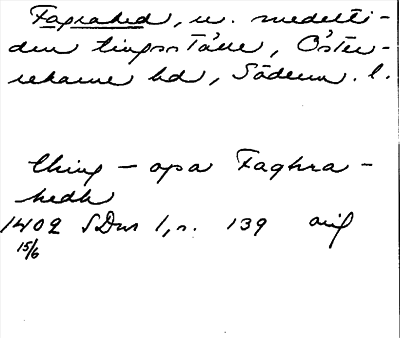 Fagrahed, u. medelti-
den tingsställe, Öster-
rekarne hd, Söderm. l.
thing – opa Faghra-
hedh
1402 SDns 1, s. 139 orig
15/6